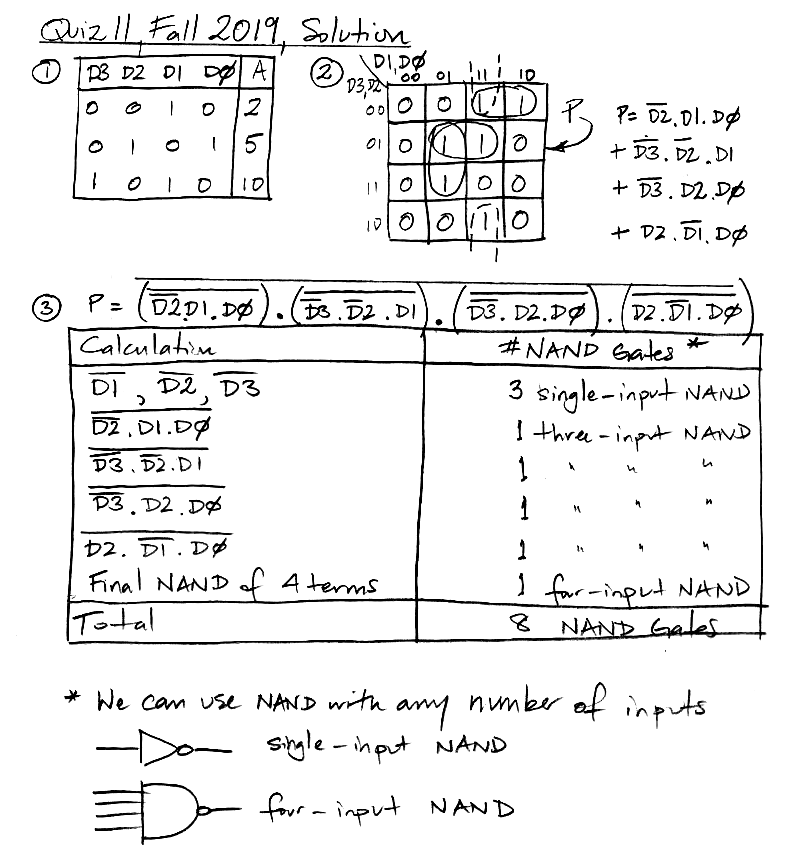 Quiz 11, Fall 2019, Solution
① D3 D2 D1 DØ A
0 0 1 0 2
0 1 0 1 5
1 0 1 0 10
② D1,DØ
D3,D2 00 01 11 10
00 0 0 1 1
01 0 1 1 0
11 0 1 0 0
10 0 0 1 0
P
P= D̅2̅.D1.DØ
+ D̅3̅.D̅2̅.D1
+ D̅3̅.D2.DØ
+ D2.D̅1̅.DØ
③ P = (D̅2̅.D1.DØ).(D̅3̅.D̅2̅.D1).(D̅3̅.D2.DØ).(D2.D̅1̅.DØ)
Calculation # NAND Gates *
D̅1̅, D̅2̅, D̅3̅ 3 single-input NAND
D̅2̅.D1.DØ 1 three-input NAND
D̅3̅.D̅2̅.D1 1 " " "
D̅3̅.D2.DØ 1 " " "
D2.D̅1̅.DØ 1 " " "
Final NAND of 4 terms 1 four-input NAND
Total 8 NAND Gates
* We can use NAND with any number of inputs
single-input NAND
four-input NAND